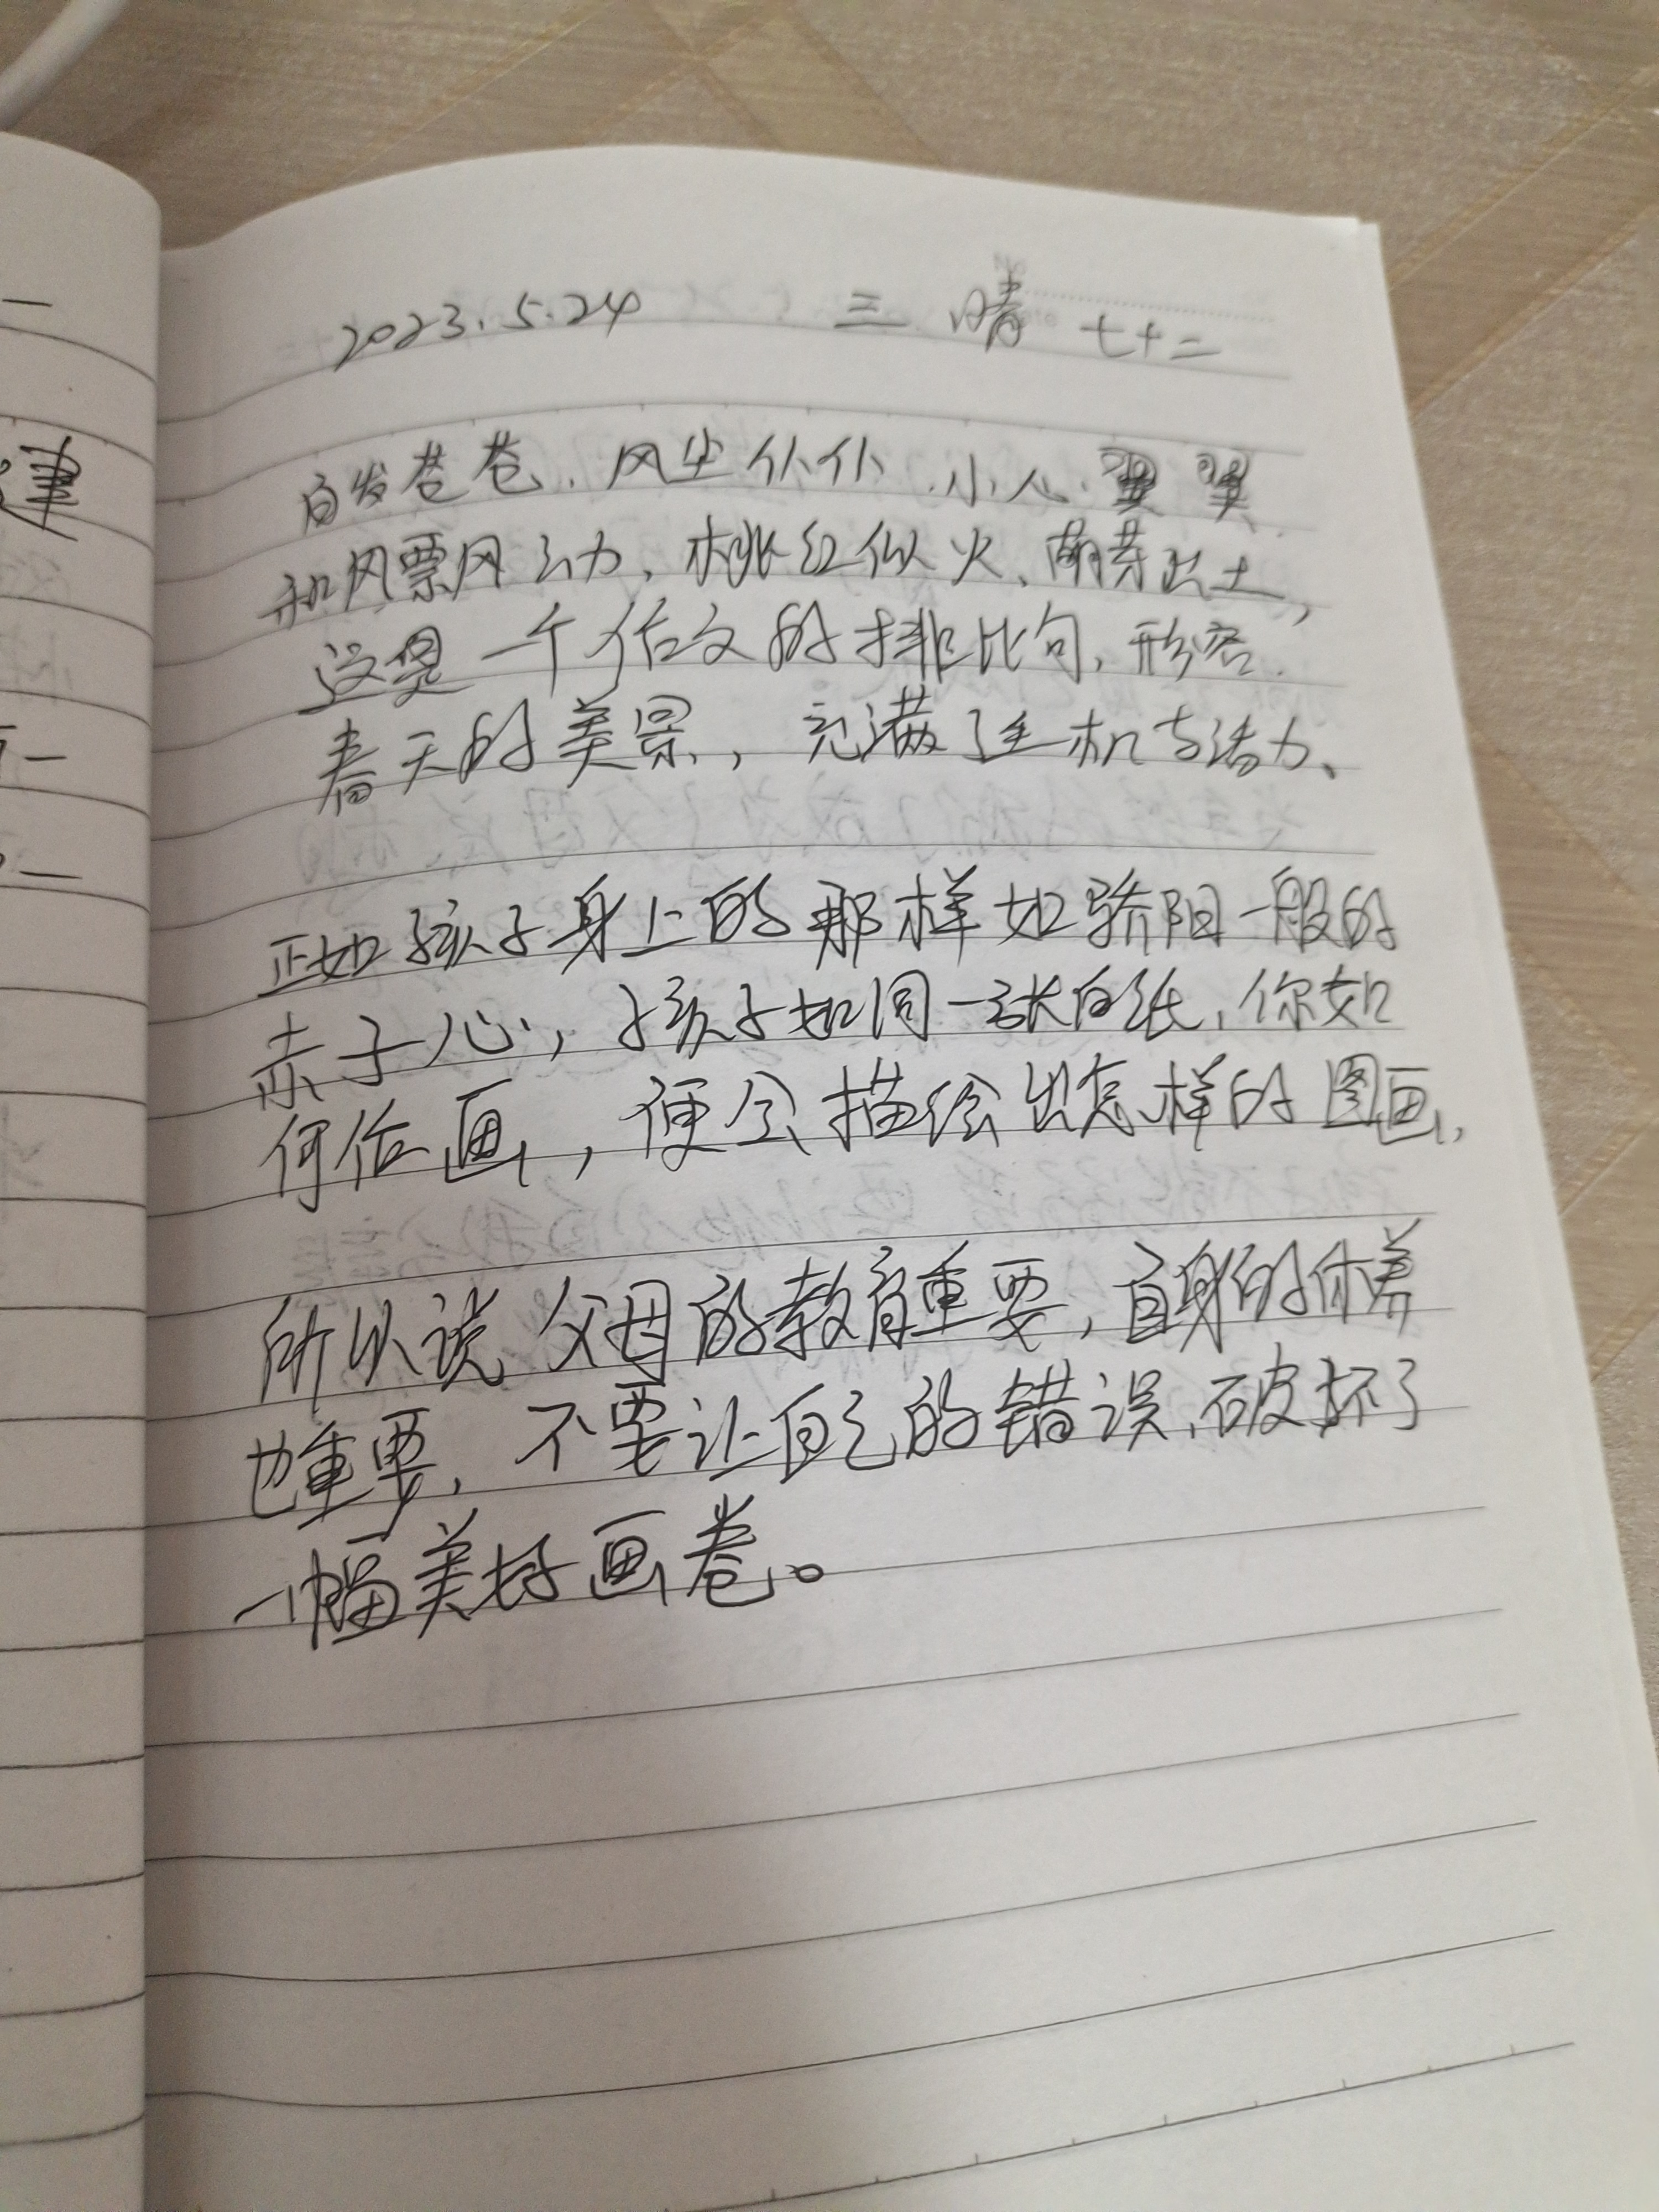 2023.5.24 三 晴 七十二
白发苍苍、风尘仆仆、小心翼翼
和风飘动、桃红似火、萌芽出土,
这是一个作文的排比句,形容
春天的美景,充满了生机与活力、
正如孩子身上的那样如骄阳一般的
赤子心,孩子如同一张白纸,你如
何作画,便会描绘出怎样的图画,
所以说父母的教育重要,自身的休养
也重要,不要让自己的错误、破坏了
一幅美好画卷。